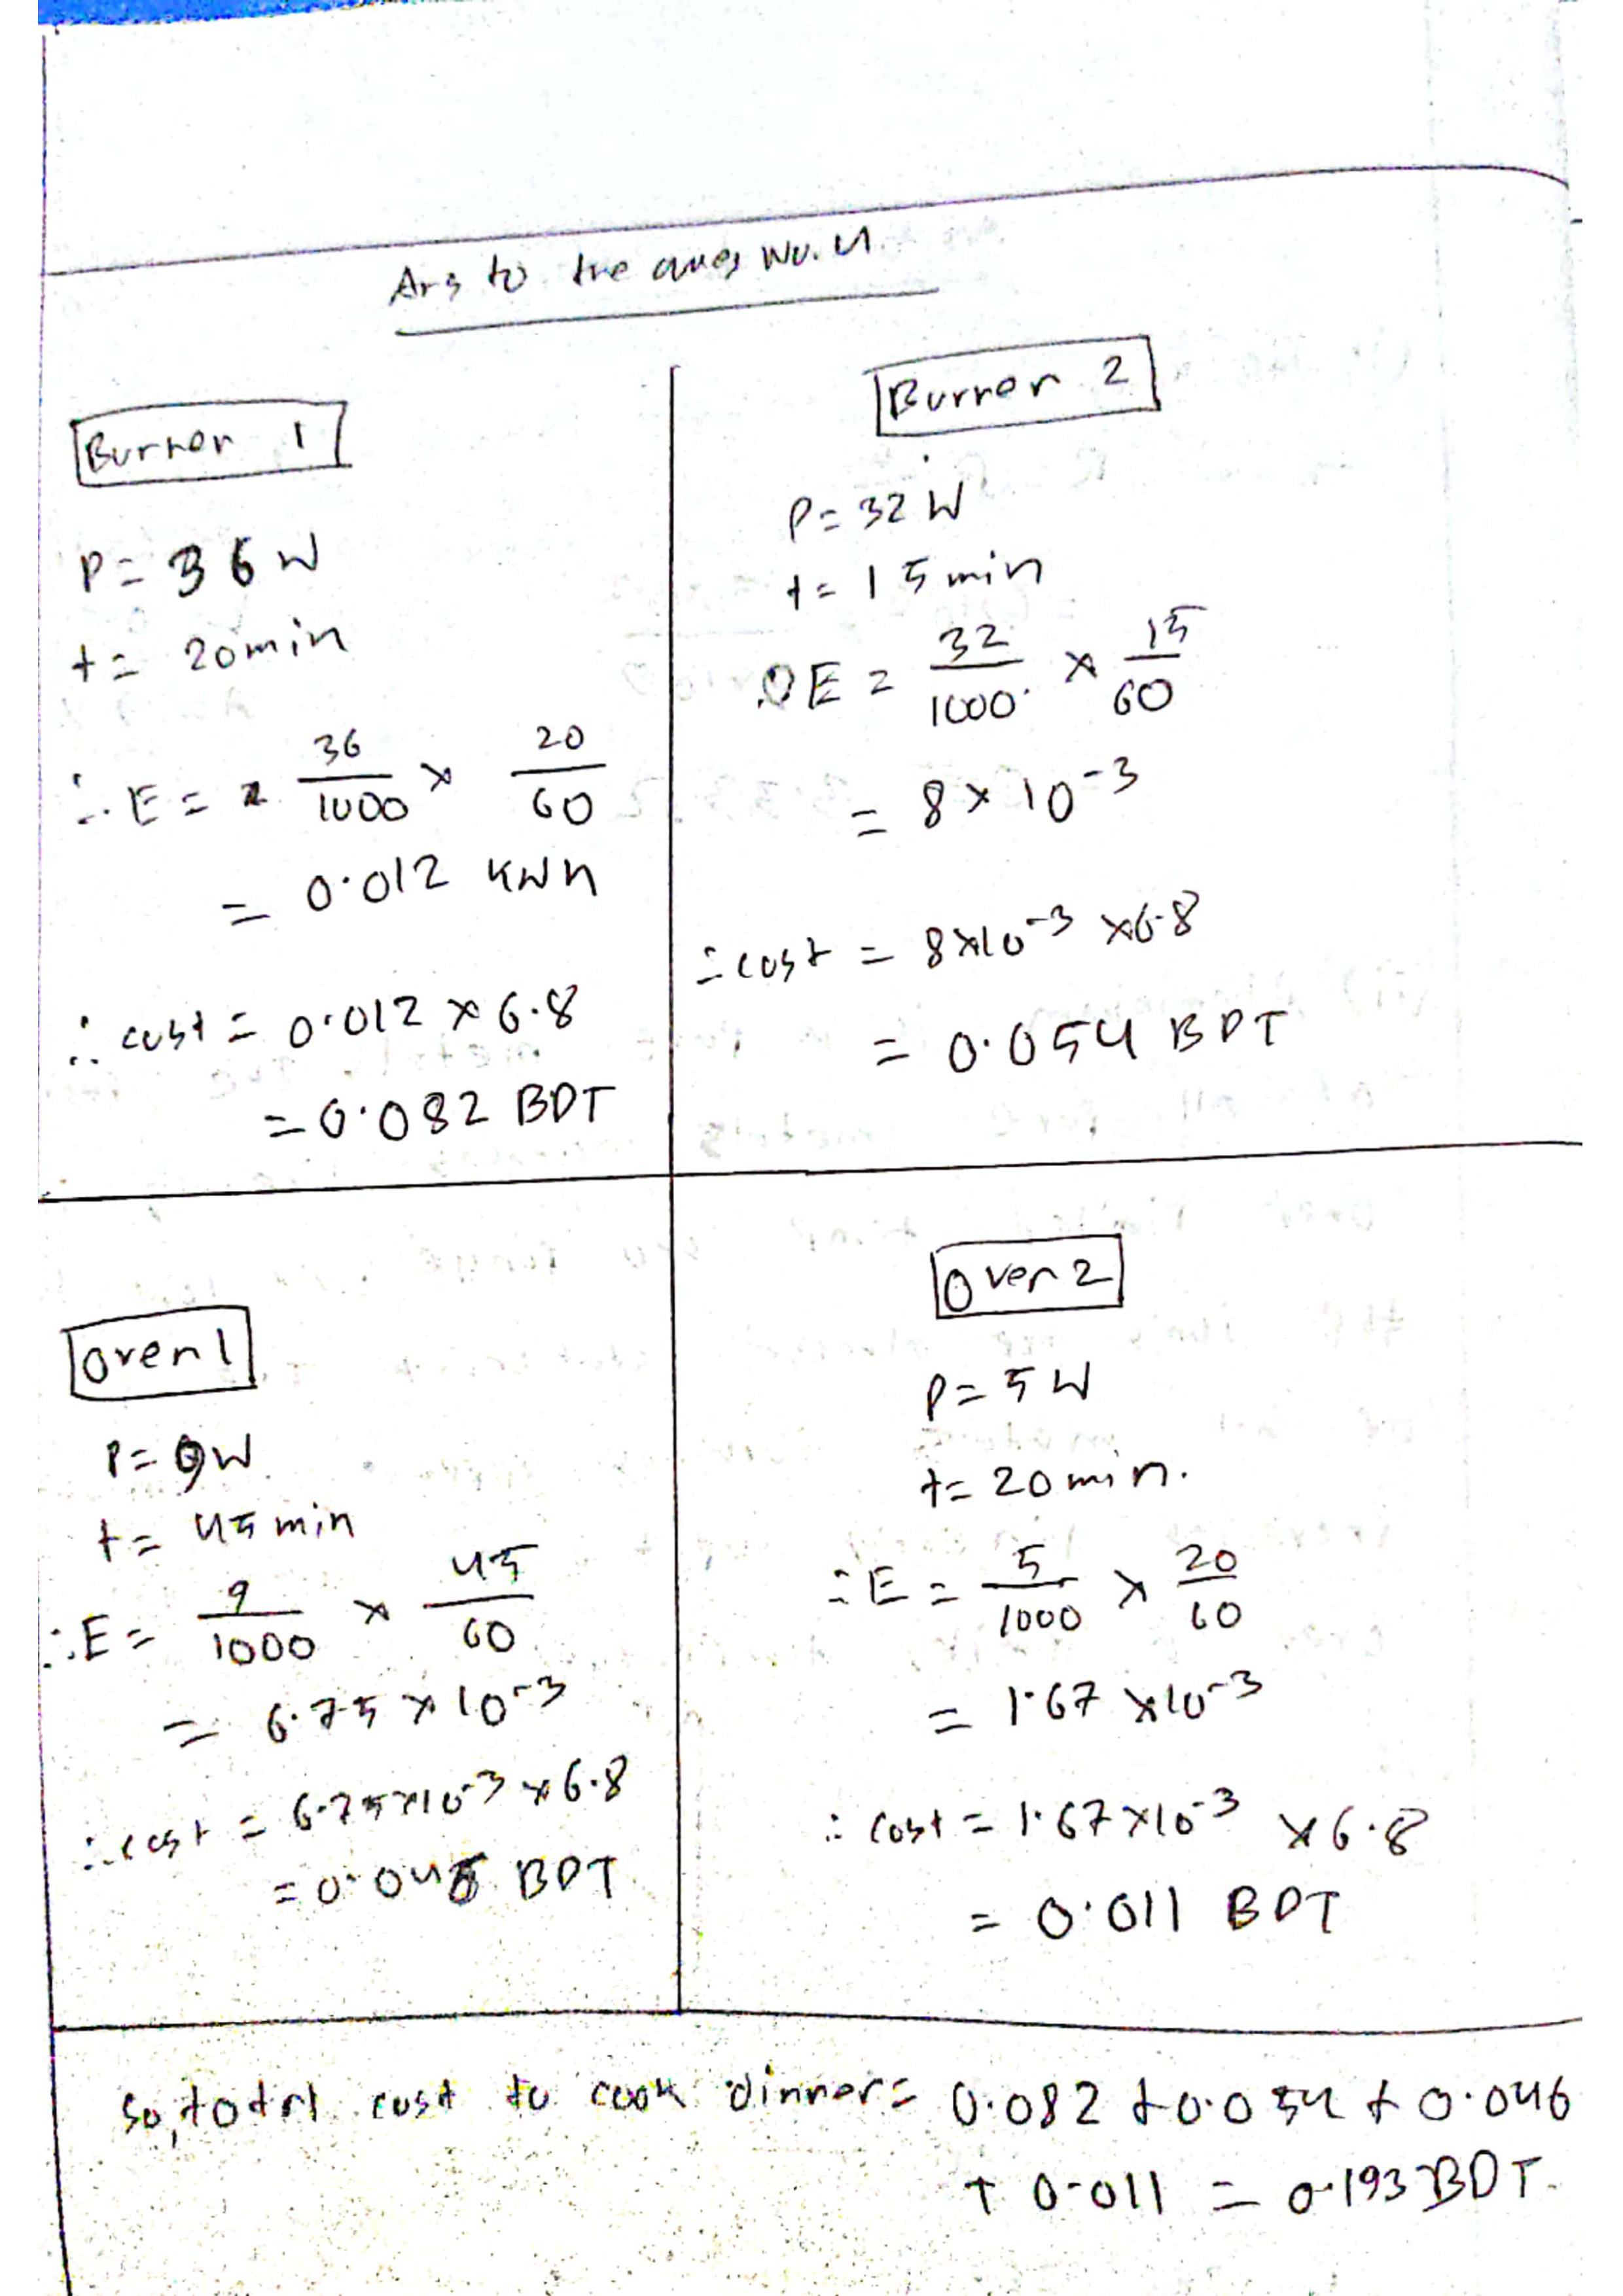 Ans to the ques No. 4
Burner 1
P = 36 W
t = 20 min
∴ E = 36/1000 × 20/60
= 0.012 kWh
∴ cost = 0.012 × 6.8
= 0.082 BDT
Burner 2
P = 32 W
t = 15 min
E = 32/1000 × 15/60
= 8 × 10⁻³
∴ cost = 8×10⁻³ × 6.8
= 0.054 BDT
Oven 1
P = 9W
t = 45 min
∴ E = 9/1000 × 45/60
= 6.75 × 10⁻³
∴ cost = 6.75×10⁻³ × 6.8
= 0.046 BDT
Oven 2
P = 5 W
t = 20 min.
∴ E = 5/1000 × 20/60
= 1.67 × 10⁻³
∴ cost = 1.67 × 10⁻³ × 6.8
= 0.011 BDT
So, total cost to cook dinner = 0.082 + 0.054 + 0.046
+ 0.011 = 0.193 BDT.